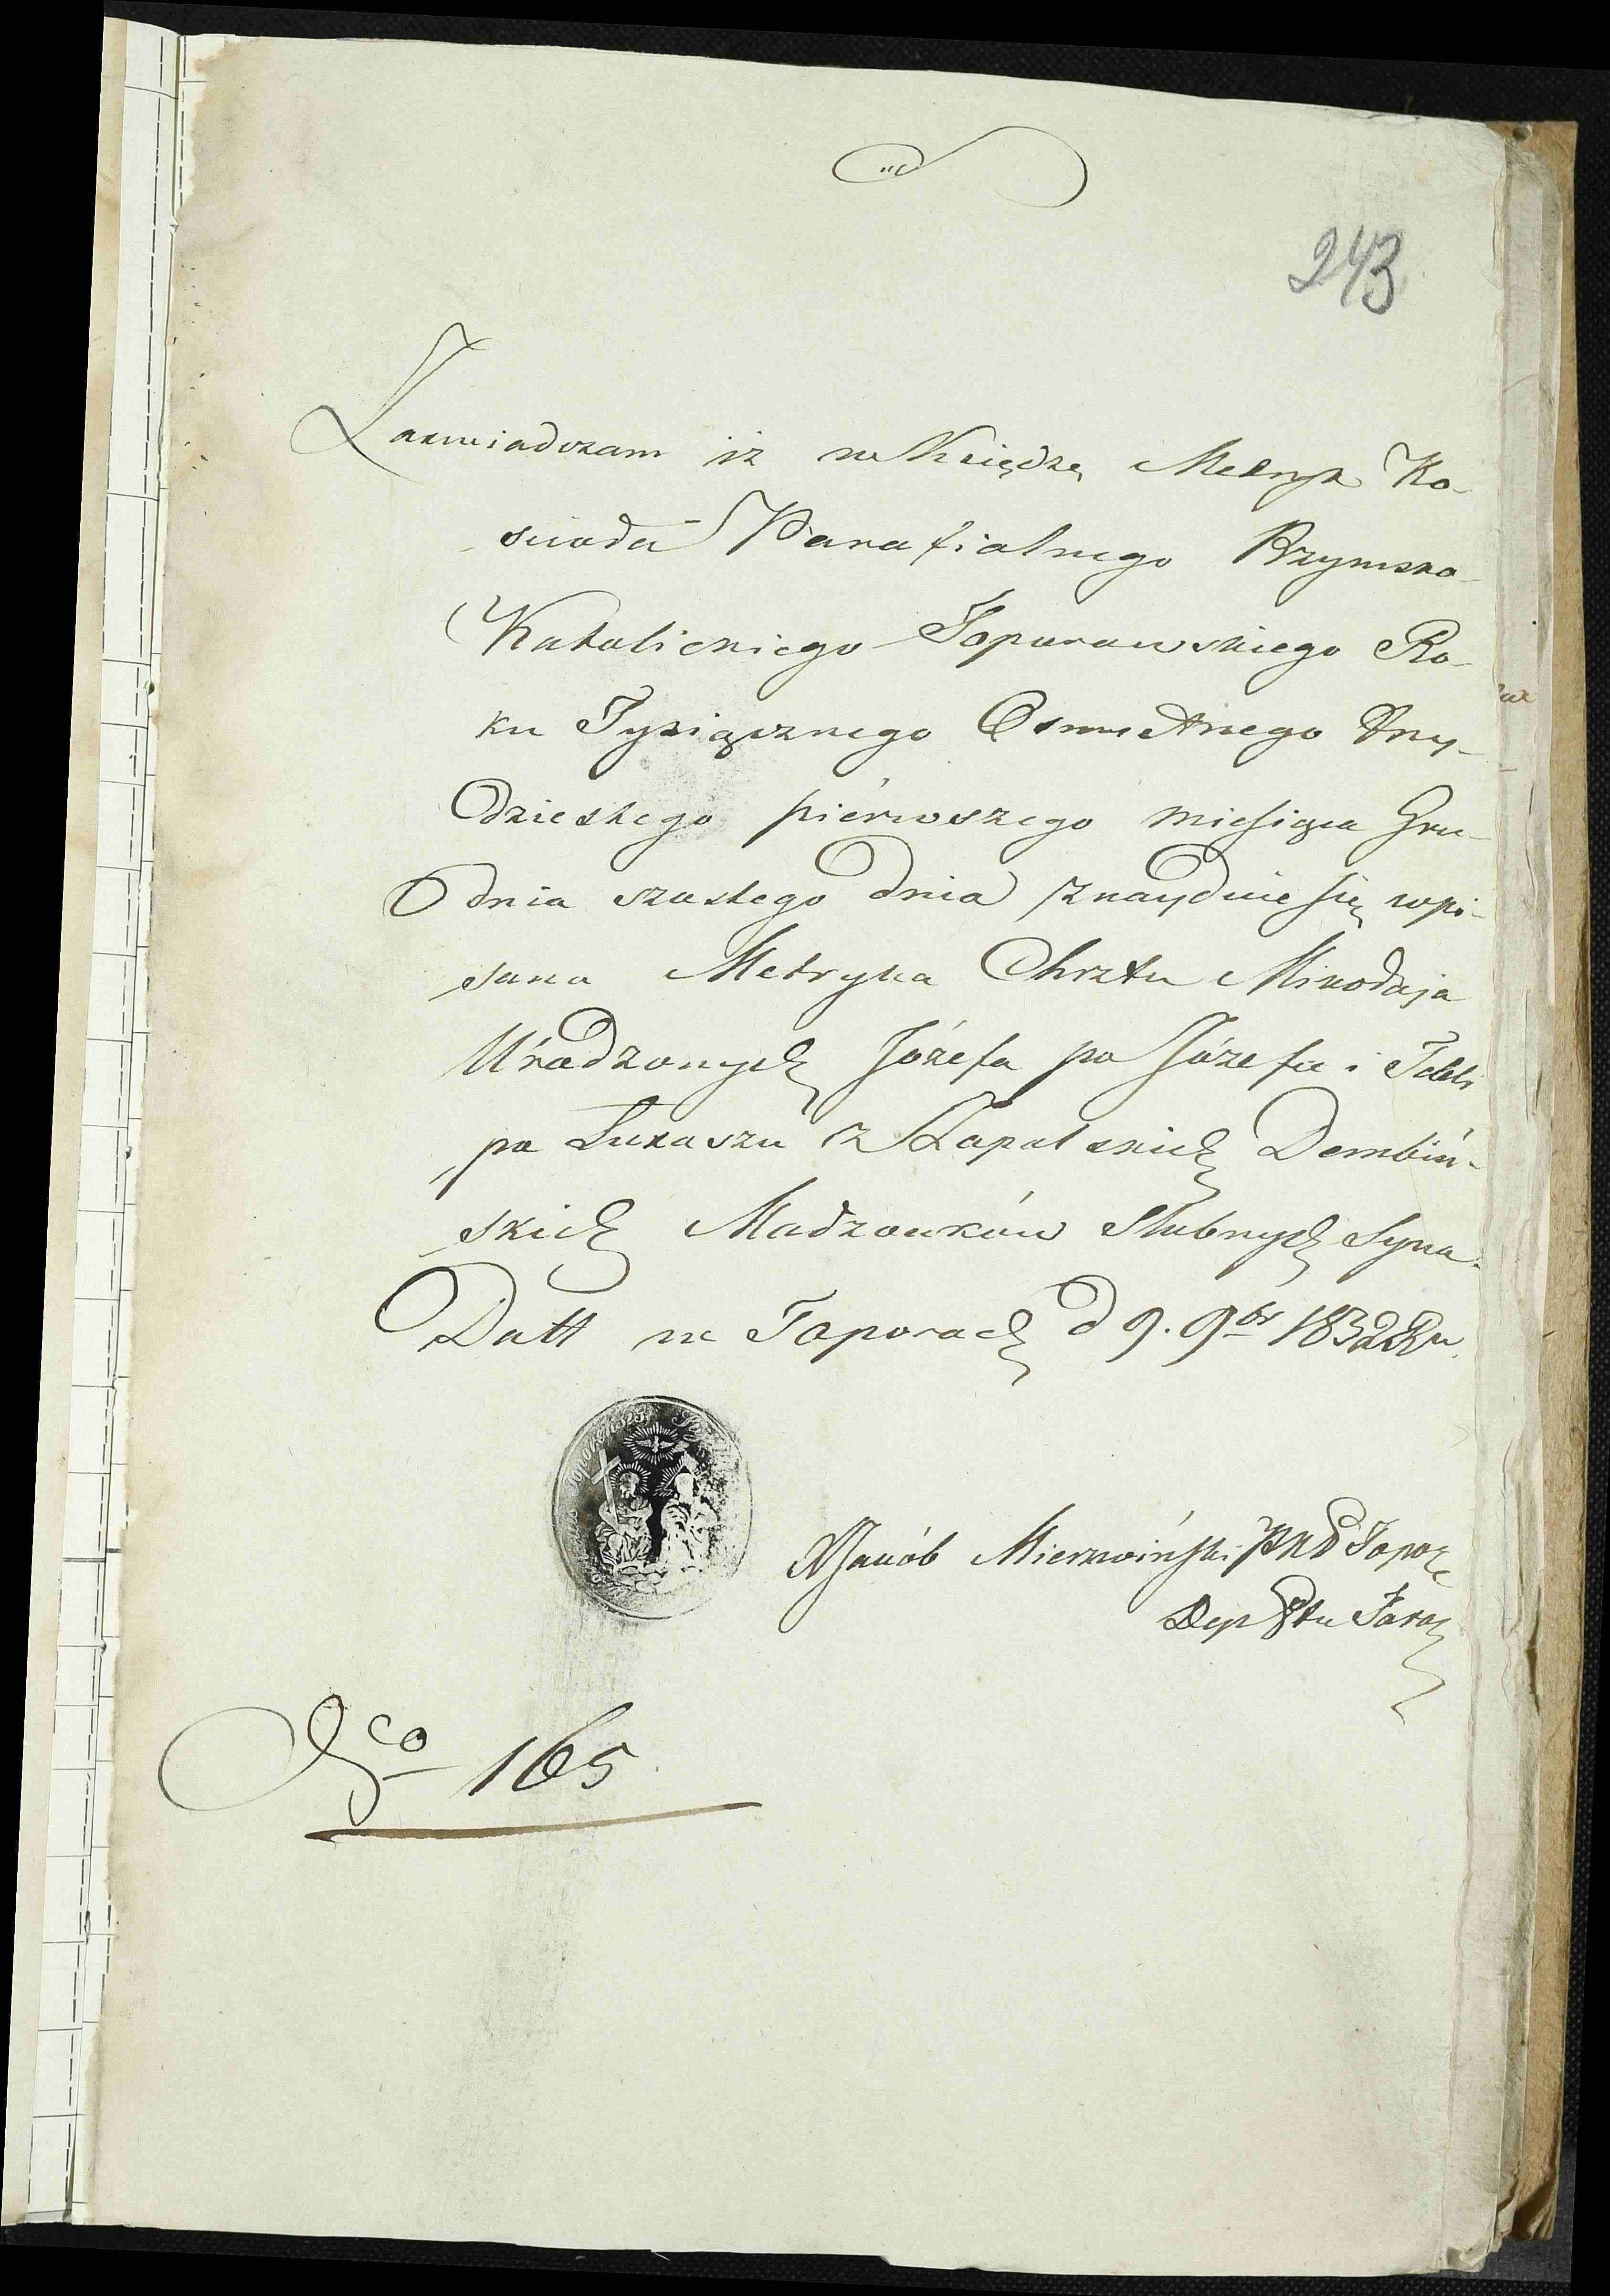 243
Zaswiadczam iż w Księdze Metryk Ko-
scioła Parafialnego Rzymsko
Katolickiego Toporowskiego Ro-
ku Tysiącznego Osmsetnego Trzy-
dziestego pierwszego miesiąca Gru-
dnia szostego dnia znayduie się wpi-
sana Metryka Chrztu Mikołaja
Urodzonych Józefa po Józefie i Tekli
po Łukaszu z Łopatskich Dembiń-
skich Małżonków Slubnych Syna.
Datt w Toporach d 9. 9br 1832 Ru
X Jakób Mierzwiński PKD Topor
165